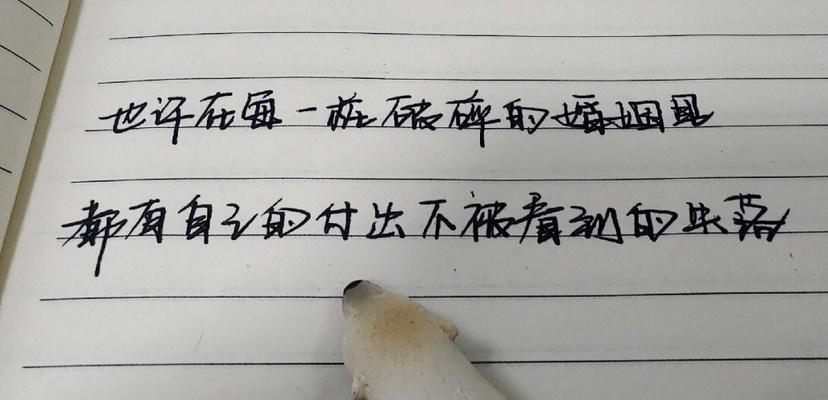 也许在每一桩破碎的婚姻里
都有自己的付出不被看到的失落